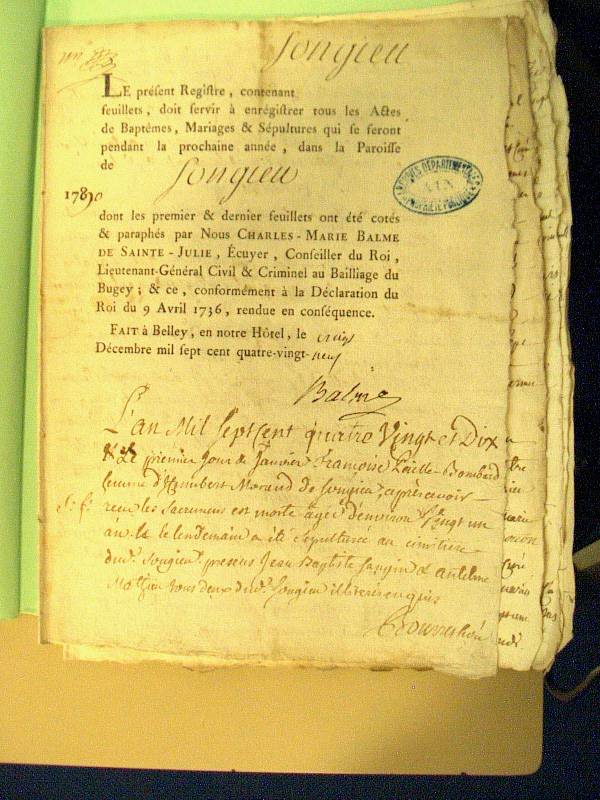 Songieu
LE présent Registre, contenant
feuillets, doit servir à enrégistrer tous les Actes
de Baptêmes, Mariages & Sépultures qui se feront
pendant la prochaine année, dans la Paroisse
de Songieu
1789 0
dont les premier & dernier feuillets ont été cotés
& paraphés par Nous CHARLES-MARIE BALME
DE SAINTE-JULIE, Écuyer, Conseiller du Roi,
Lieutenant-Général Civil & Criminel au Bailliage du
Bugey; & ce, conformément à la Déclaration du
Roi du 9 Avril 1736, rendue en conséquence.
FAIT à Belley, en notre Hôtel, le
Décembre mil sept cent quatre-vingt-neuf
Balme
L'an Mil Sept Cent quatre Vingt et Dix
& Le premier Jour de Janvier Françoise Bombard
femme d'Humbert Morand de Songieu, après avoir
S: f: reçu les sacremens est morte agée d'environ Vingt un
an & le lendemain a été sepulturée au cimitiere
dud. Songieu, presens Jean Baptiste & antelme
tous deux dud. Songieu illiterés enquis